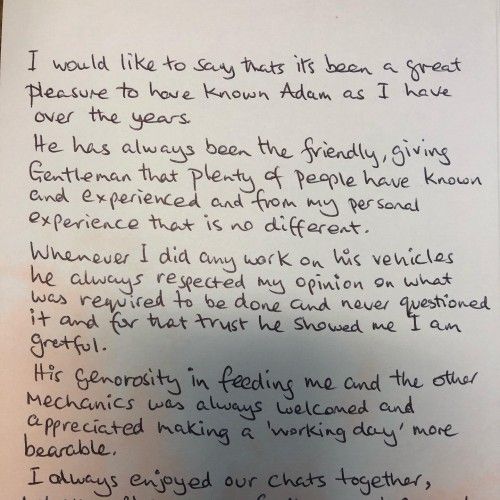 I would like to say thats its been a great
pleasure to have known Adam as I have
over the years.
He has always been the friendly, giving
Gentleman that plenty of people have known
and experienced and from my personal
experience that is no different.
Whenever I did any work on his vehicles
he always respected my opinion on what
was required to be done and never questioned
it and for that trust he showed me I am
gretful.
His generosity in feeding me and the other
Mechanics was always welcomed and
appreciated making a 'working day' more
bearable.
I always enjoyed our chats together,